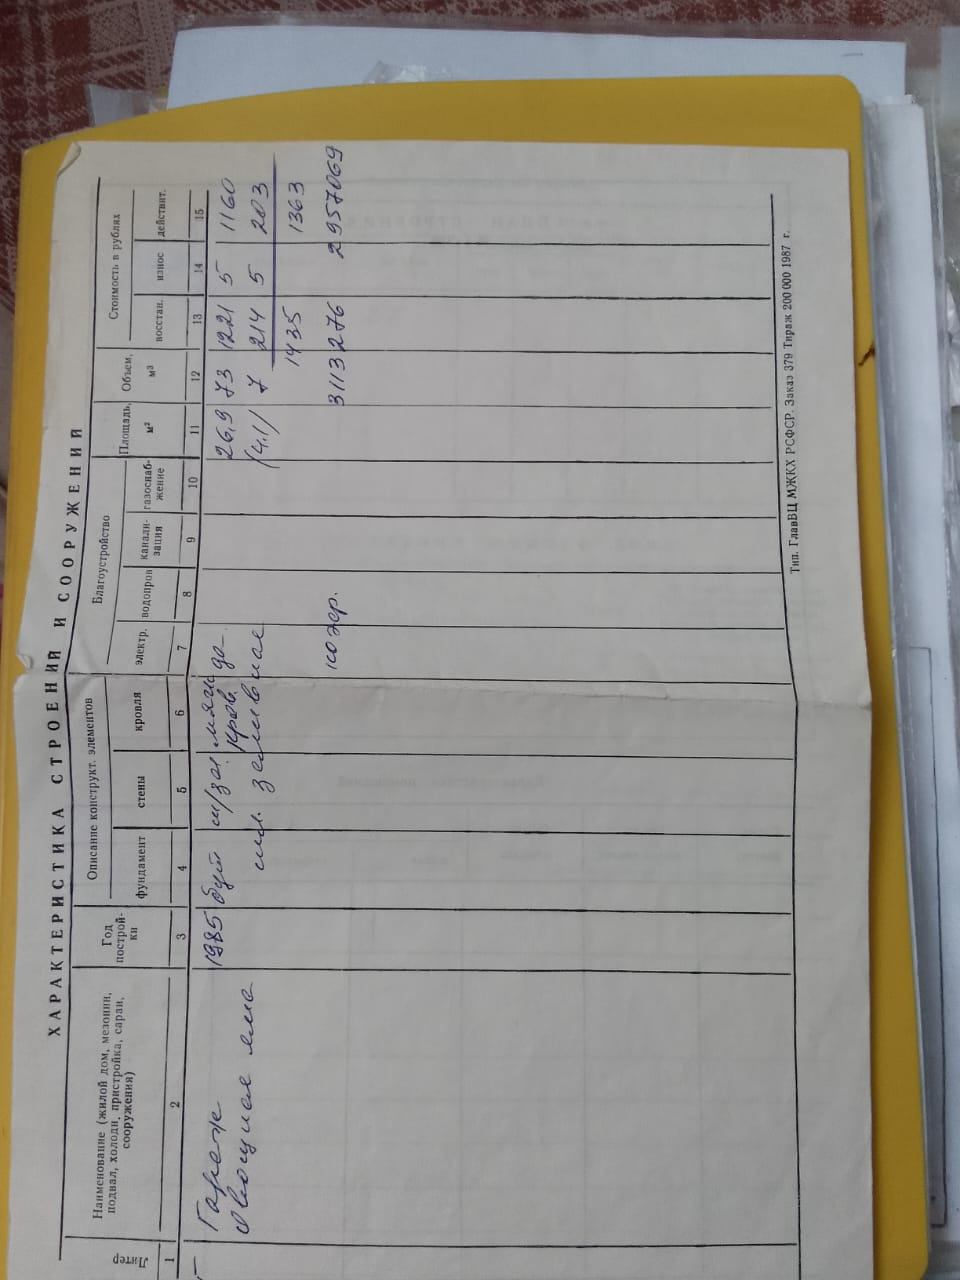 ХАРАКТЕРИСТИКА СТРОЕНИЙ И СООРУЖЕНИЙ
Литер
Наименование (жилой дом, мезонин, подвал, холодн. пристройка, сараи, сооружения)
Год построй-
ки
Описание конструкт. элементов
фундамент
стены
кровля
Благоустройство
электр.
водопров
канали-
зация
газоснаб-
жение
Площадь, м²
Объем, м³
Стоимость в рублях
восстан.
износ
действит.
1 2 3 4 5 6 7 8 9 10 11 12 13 14 15
Гараж 1985 бут ш/зал. мягк. да 26,9 73 1221 5 1160
кров.
Овощная яма земляная (4,1) 7 214 5 203
1435 1363
коэф. 3113276 2957069
Тип. ГлавВЦ МЖКХ РСФСР. Заказ 379 Тираж 200 000 1987 г.